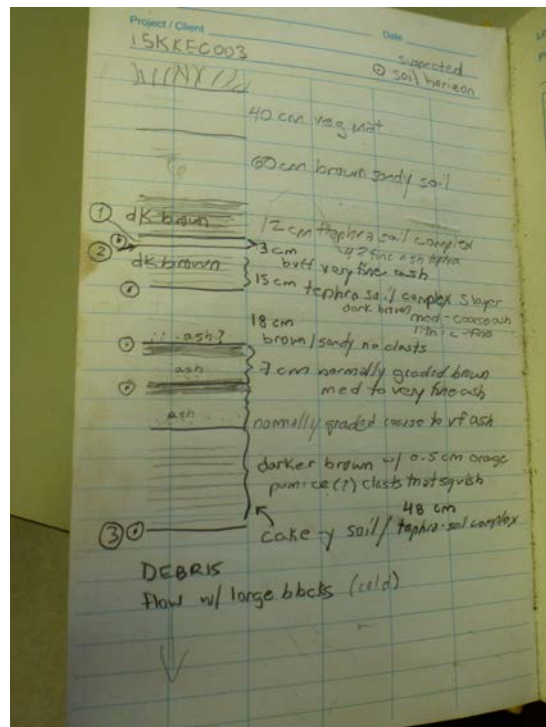 Project / Client
Date
15KKEC003
suspected
⊙ soil horizon
40 cm veg mat
60 cm brown sandy soil
① dk brown
12 cm tephra soil complex
4? fine ash tephra
②
3 cm
buff very fine ash
dk brown
15 cm tephra soil complex 5 layer
dark brown
med-coarse ash
lithic-fine
18 cm
brown/sandy no clasts
ash?
7 cm normally graded brown
med to very fine ash
ash
ash
normally graded coarse to vf ash
darker brown w/ 0.5 cm orange
pumice(?) clasts that squish
48 cm
③ ⊙
cake-y soil / tephra-soil complex
DEBRIS
flow w/ large blocks (cold)